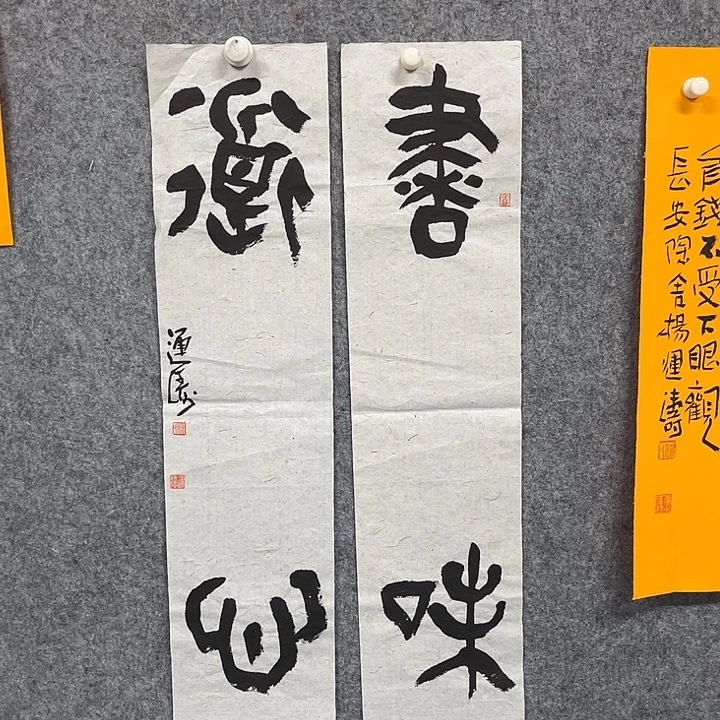 錢不受下眼觀
長安舍楊運濤
書味
道心
運濤